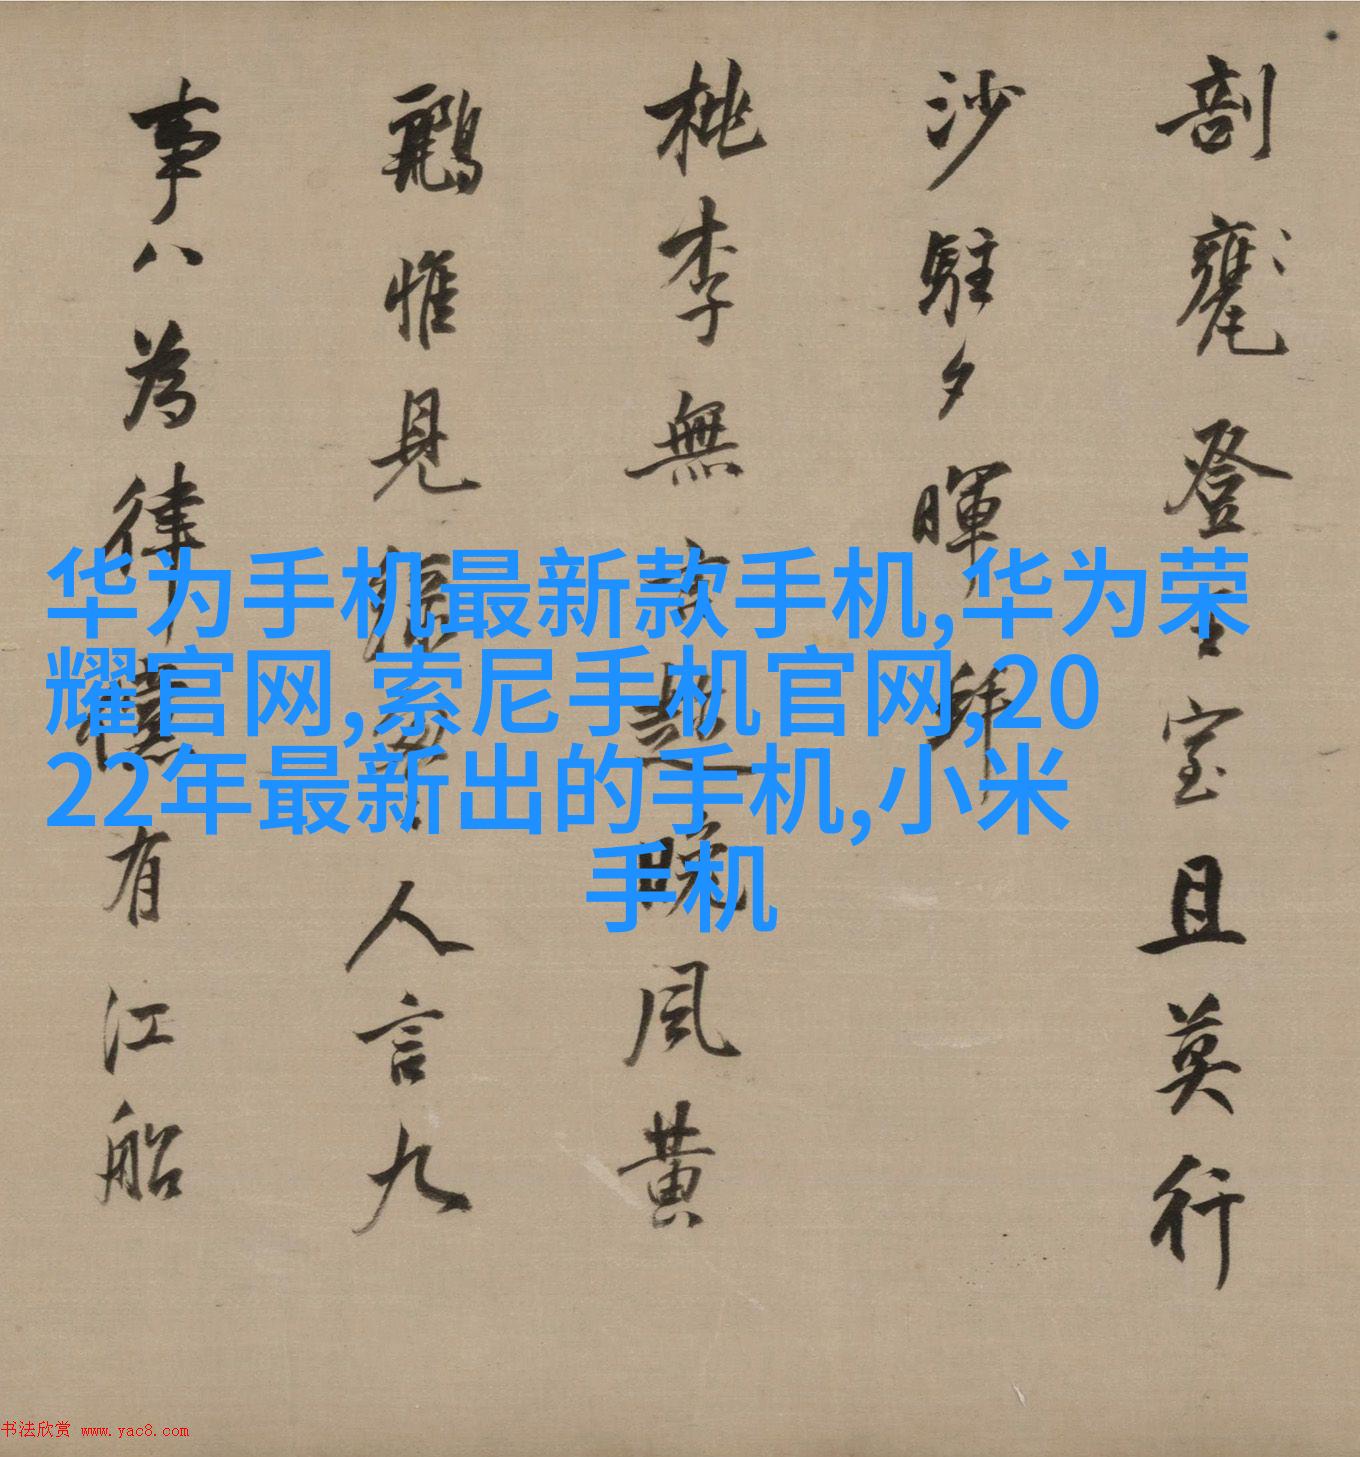 剖甕登室且莫行
沙駐夕暉
桃李無言晚風黃
鸝惟見人言九
事八為律有江船
华为手机最新款手机,华为荣
耀官网,索尼手机官网,20
22年最新出的手机,小米
手机
书法欣赏 www.yac8.com